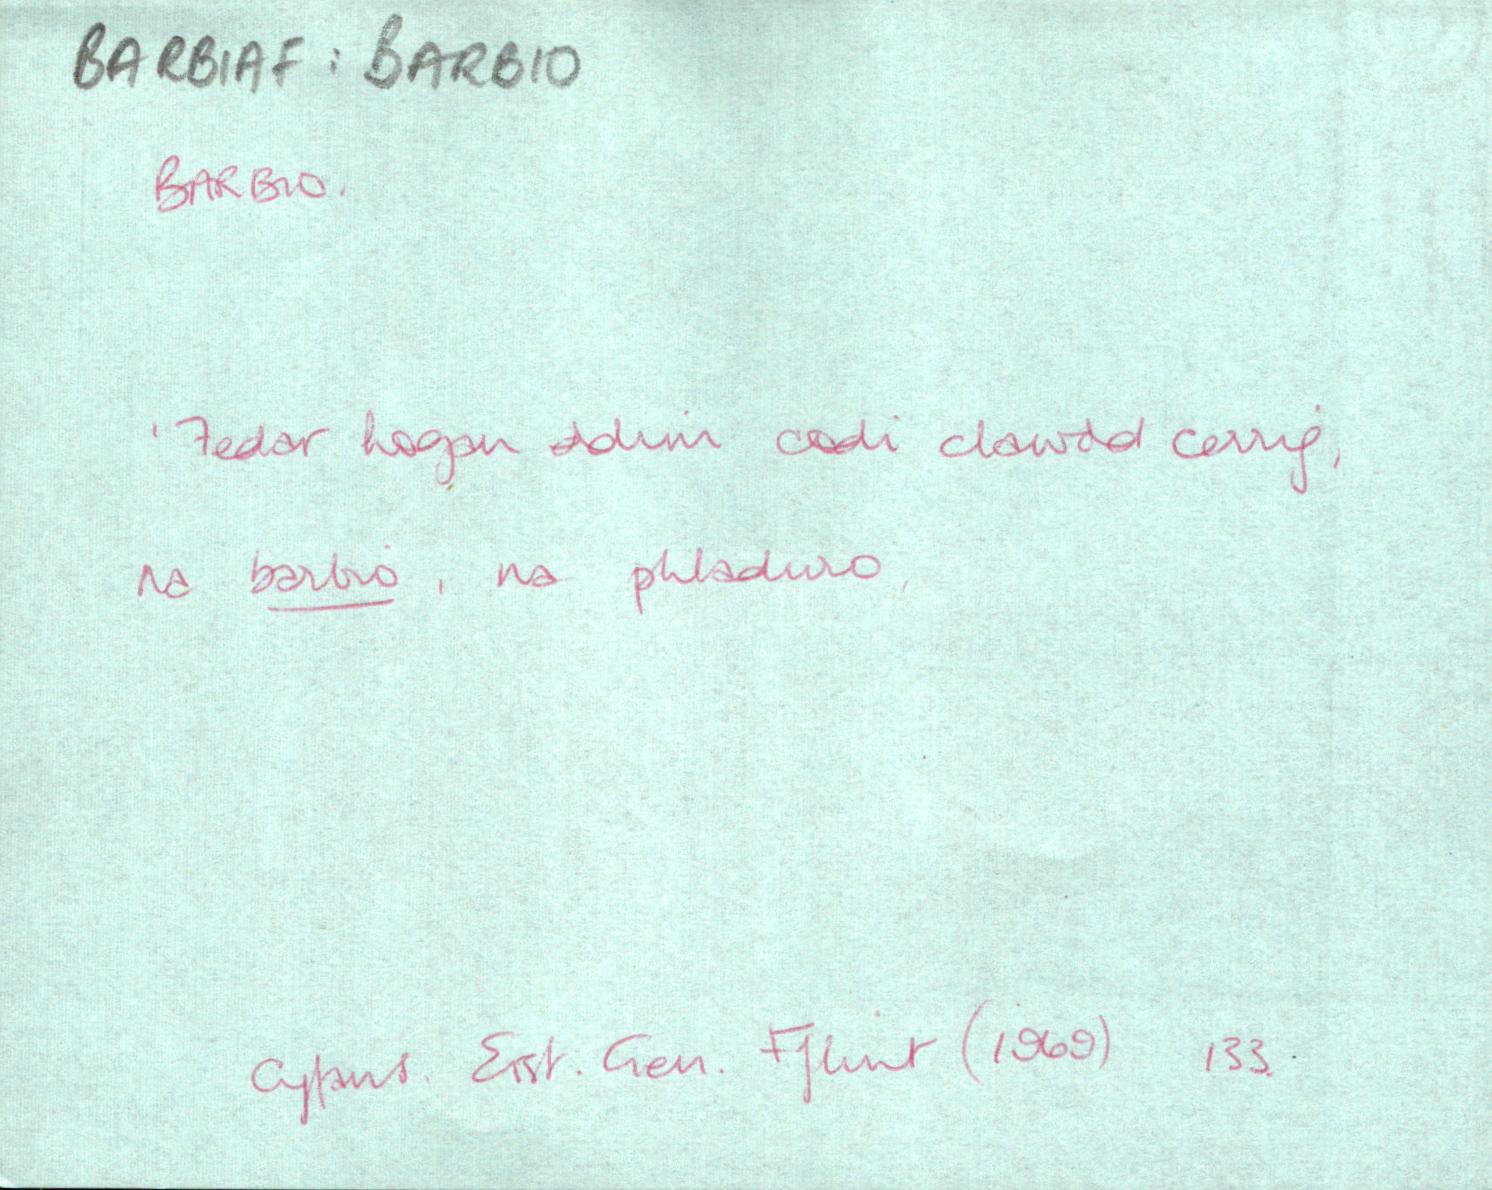 BARBIAF : BARBIO
BARBIO.
'Fedar hogan ddim codi clawdd cerrig,
na barbio, na phladuro,
Cyfans. Eist. Gen. Fflint (1969) 133.